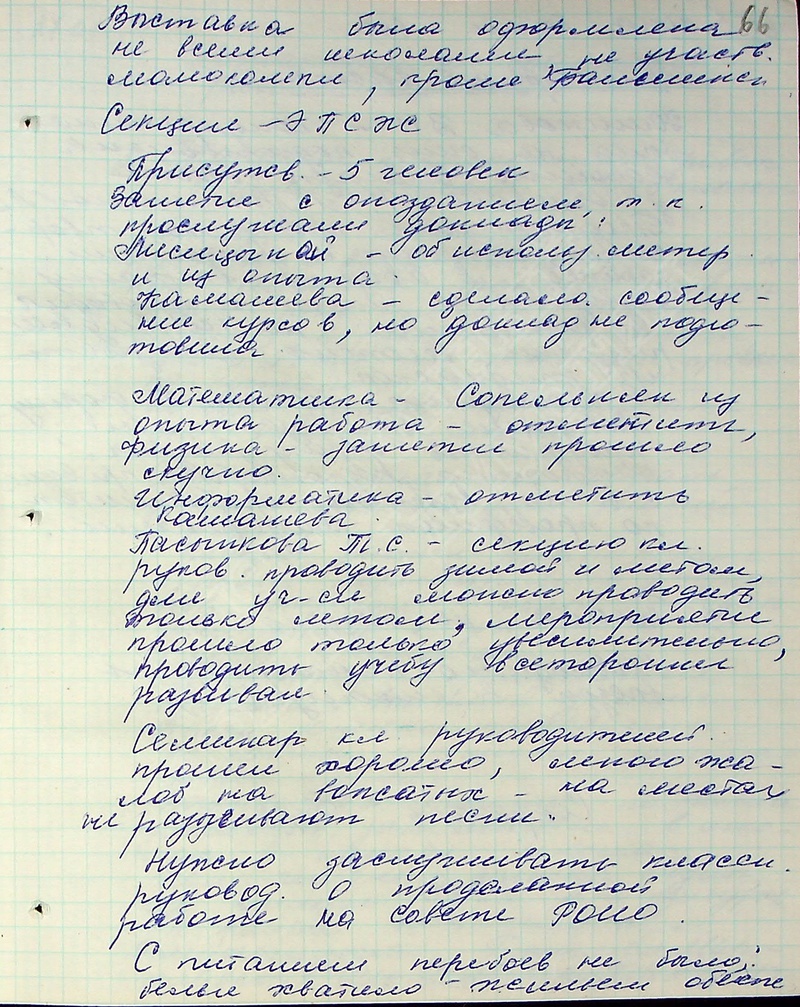 66
Выставка была оформлена
не всеми школами, не участв.
малокомпл, кроме
Секция – ЭПСЖС
Присутств. – 5 человек
Занятие с опозданием, т. к.
прослушали доклады:
Лисицыной – об использ. матер
и из опыта.
Камашева – сделала сообще-
ние курсов, но доклад не подго-
товила
Математика – из
опыта работа – отметить,
физика – занятии прошло
скучно.
Информатика – отметить
Камашева.
Пасынкова Т.С. – секцию кл.
руков. проводить зимой и летом,
для уч-ся можно проводить
только летом, мероприятие
прошло только увеселительно,
проводить учебу всесторонне
развивал.
Семинар кл руководителей.
прошел хорошо, много жа-
лоб на вожатых – на местах
не разучивают песни.
Нужно заслушивать классн.
руковод. о проделанной
работе на совете РОНО.
С питанием перебоев не было,
белья хватило – жильем обеспе